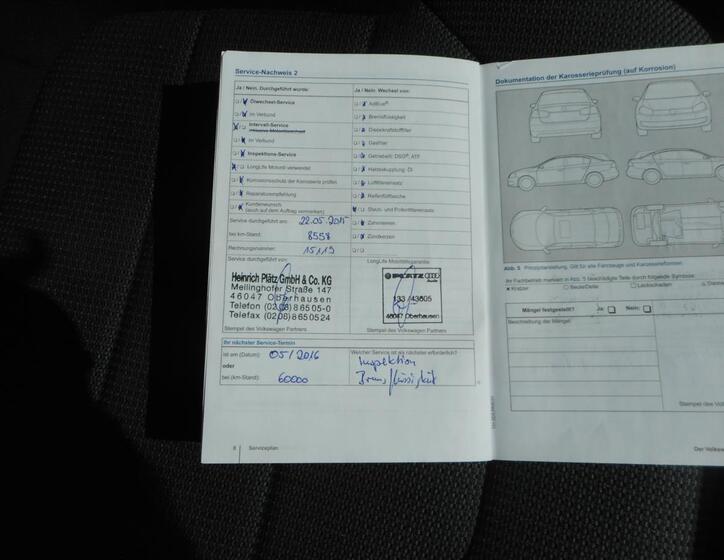 Service-Nachweis 2
Ja / Nein. Durchgeführt wurde:
Ölwechsel-Service
im Verbund
Intervall-Service
im Verbund
Inspektions-Service
LongLife Motoröl verwendet
Korrosionsschutz der Karosserie prüfen
Reparaturempfehlung
Kundenwunsch
(siehe auf dem Auftrag vermerken)
Service durchgeführt am: 22.05.2015
bei km-Stand: 8558
Rechnungsnummer: 15119
Service durchgeführt von:
Heinrich Plätz GmbH & Co. KG
Mellinghofer Straße 147
46047 Oberhausen
Telefon (0208) 86505-0
Telefax (0208) 8650524
Stempel des Volkswagen Partners
Ja / Nein. Wechsel von:
AdBlue®
Bremsflüssigkeit
Dieselkraftstofffilter
Gasfilter
Getriebeöl: DSG®, ATF
Haldexkupplung: Öl
Luftfiltereinsatz
Reifenfüllflasche
Staub- und Pollenfiltereinsatz
Zahnriemen
Zündkerzen
LongLife Mobilitätsgarantie
PLÄTZ
Audi
133 /43605
46047 Oberhausen
Stempel des Volkswagen Partners
Ihr nächster Service-Termin
ist am (Datum): 05/2016
oder
bei (km-Stand): 60000
Welcher Service ist als nächster erforderlich?
Inspektion
8 Serviceplan
Dokumentation der Karosserieprüfung (auf Korrosion)
Abb. 5 Prinzipdarstellung. Gilt für alle Fahrzeuge und Karosserieformen.
Ihr Fachbetrieb markiert in Abb. 5 beschädigte Teile durch folgende Symbole:
× Kratzer ○ Beule/Delle □ Lackschaden
Mängel festgestellt? Ja: Nein:
Beschreibung der Mängel:
Stempel des Vol
Der Volksw